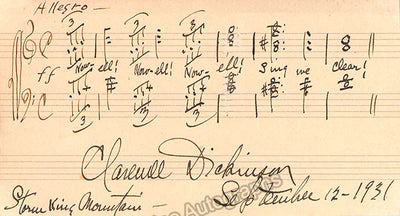 Allegro –
3 3 3
ff Now-ell! Now-ell! Now-ell! Sing we clear!
3 3 3
Clarence Dickinson
Storm King Mountain – September 12-1931
Autographs